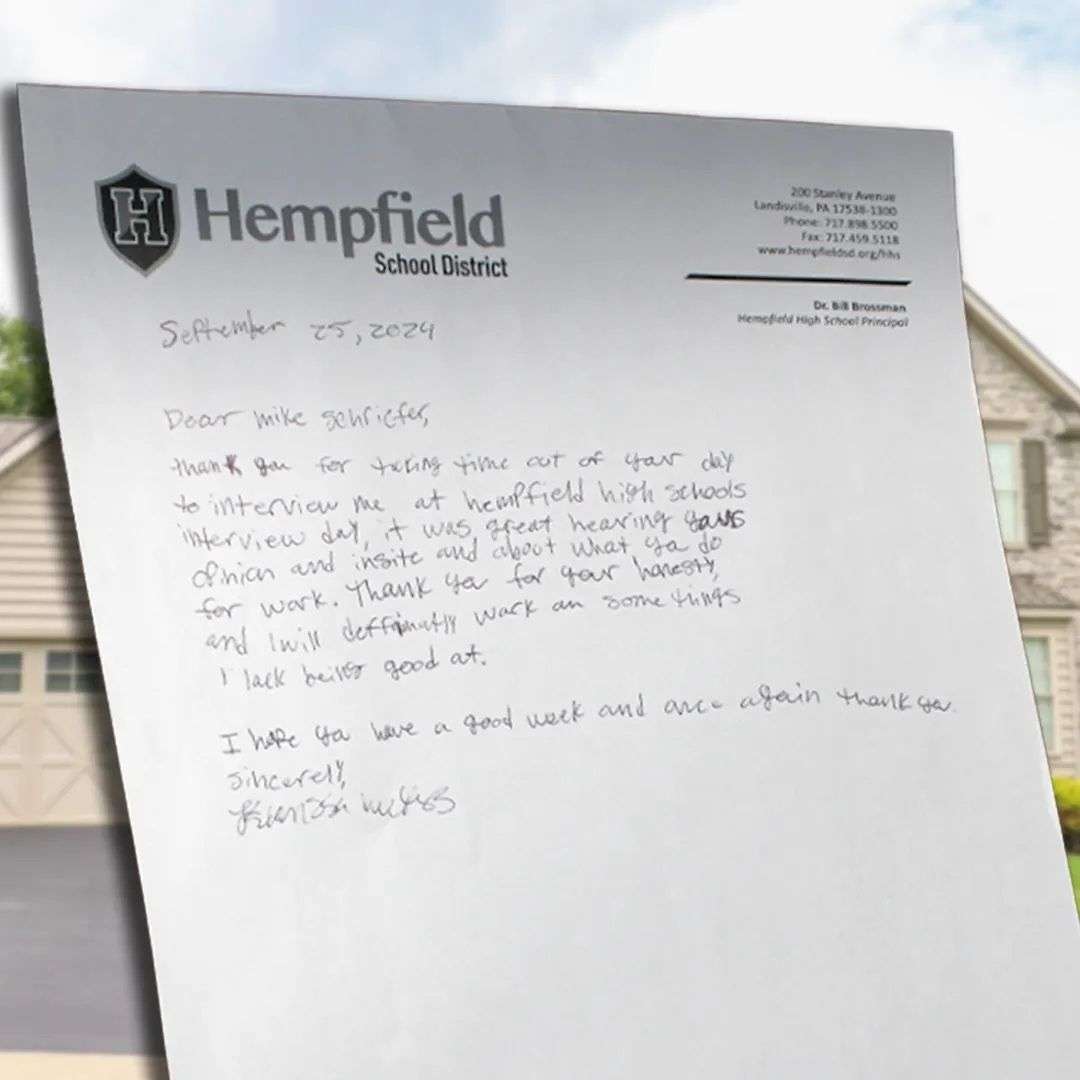 H
Hempfield
School District
200 Stanley Avenue
Landisville, PA 17538-1300
Phone: 717.898.5500
Fax: 717.459.5118
www.hempfieldsd.org/hhs
Dr. Bill Brossman
Hempfield High School Principal
September 25, 2024
Dear Mike Schriefer,
thank you for taking time out of your day
to interview me at hempfield high schools
interview day, it was great hearing yours
opinion and insite and about what you do
for work. Thank you for your honesty,
and I will deffinatly work on some things
I lack being good at.
I hope you have a good week and once again thank you.
Sincerely,